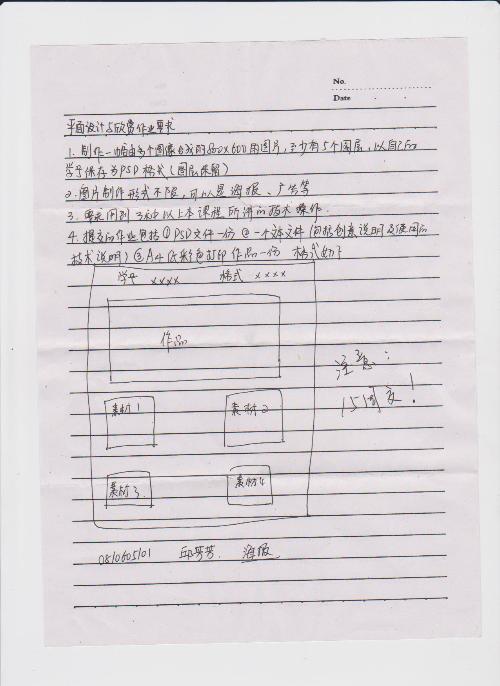 No.
Date
平面设计与欣赏作业要求
1. 制作一幅由多个图像合成的800×600的图片，至少有5个图层，以自己的
学号保存为PSD格式（图层保留）
2. 图片制作形式不限，可以是海报、广告等
3. 要求用到3种以上本课程所讲的技术操作.
4. 提交的作业包括①PSD文件一份②一个文本文件（包括创意说明及使用的
技术说明）③A4纸彩色打印作品一份 格式如下
学号 ×××× 格式 ××××
作品
注意：
15周交！
素材1 素材2
素材3 素材4
0810605101 邱芳芳 海报